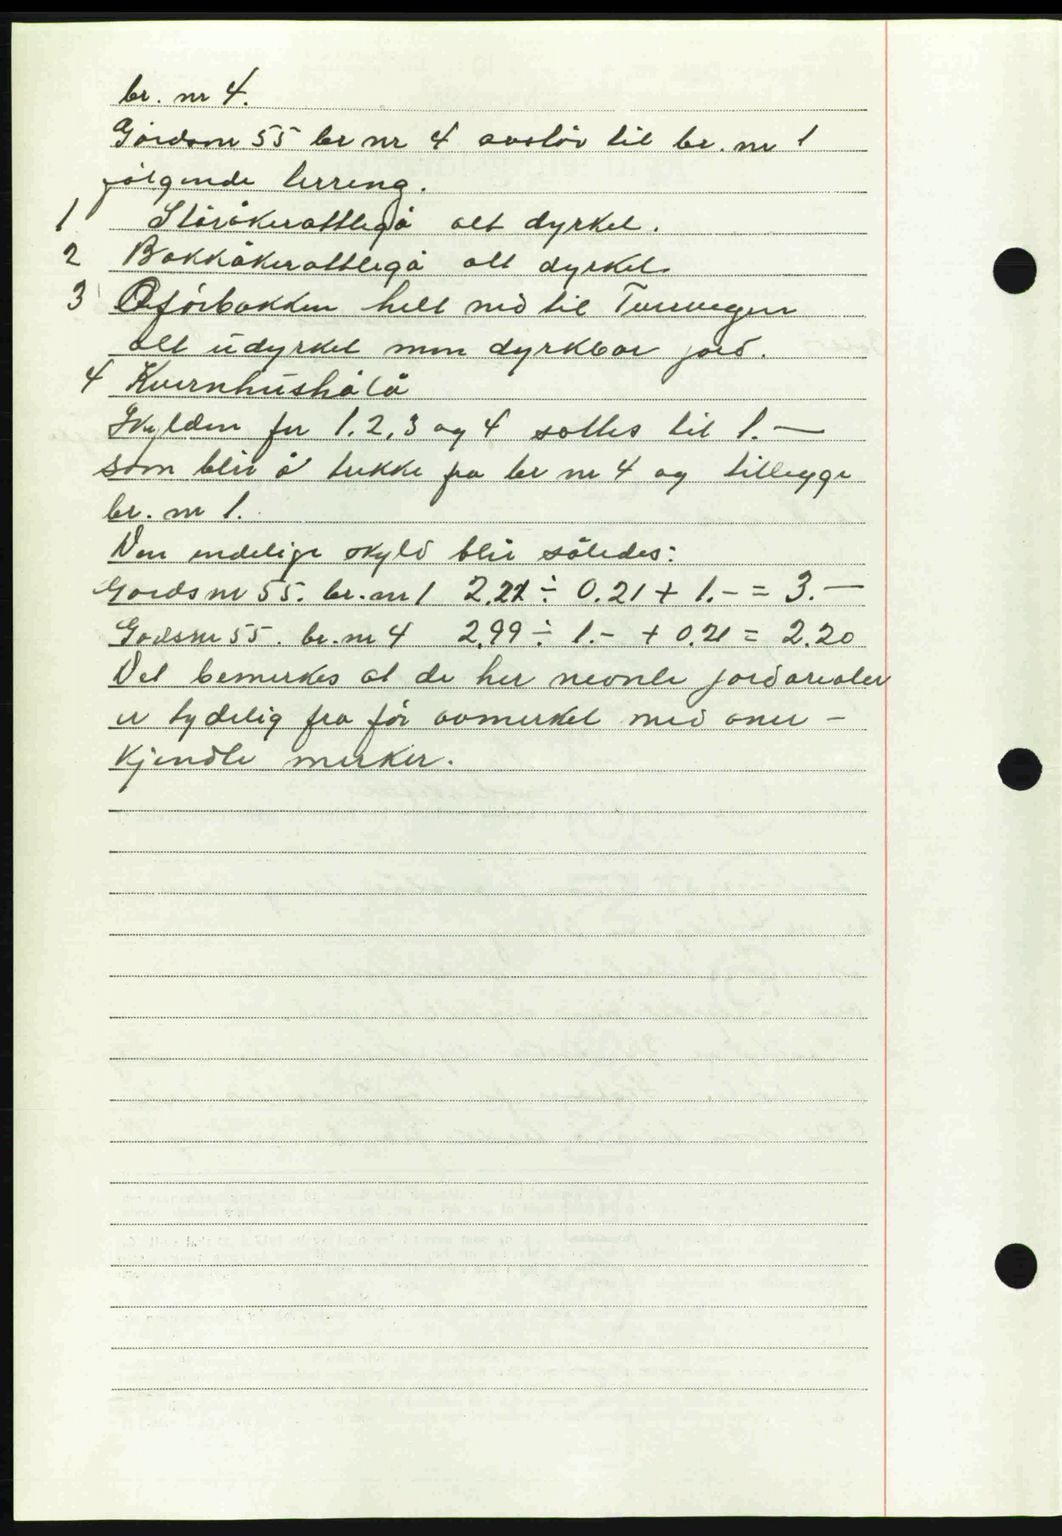 br. nr 4.
Gårdsnr 55 br nr 4 avstår til br. nr 1
følgende terreng.
1 Störåkerattlegå alt dyrket.
2 Bakkåkerattlegå alt dyrket.
3 Oførbakken helt ned til Tunvegen
alt udyrket men dyrkbar jord.
4 Kvernhushålå
Skylden for 1, 2, 3 og 4 settes til 1.—
som blir å trekke fra br nr 4 og tillegge
br. nr 1.
Den endelige skyld blir således:
Gardsnr 55. br. nr 1 2.21 ÷ 0.21 + 1.- = 3.—
Gardsnr 55. br. nr 4 2.99 ÷ 1.- + 0.21 = 2.20
Det bemerkes at de her nevnte jordarealer
er tydelig fra før avmerket med aner-
kjendte merker.